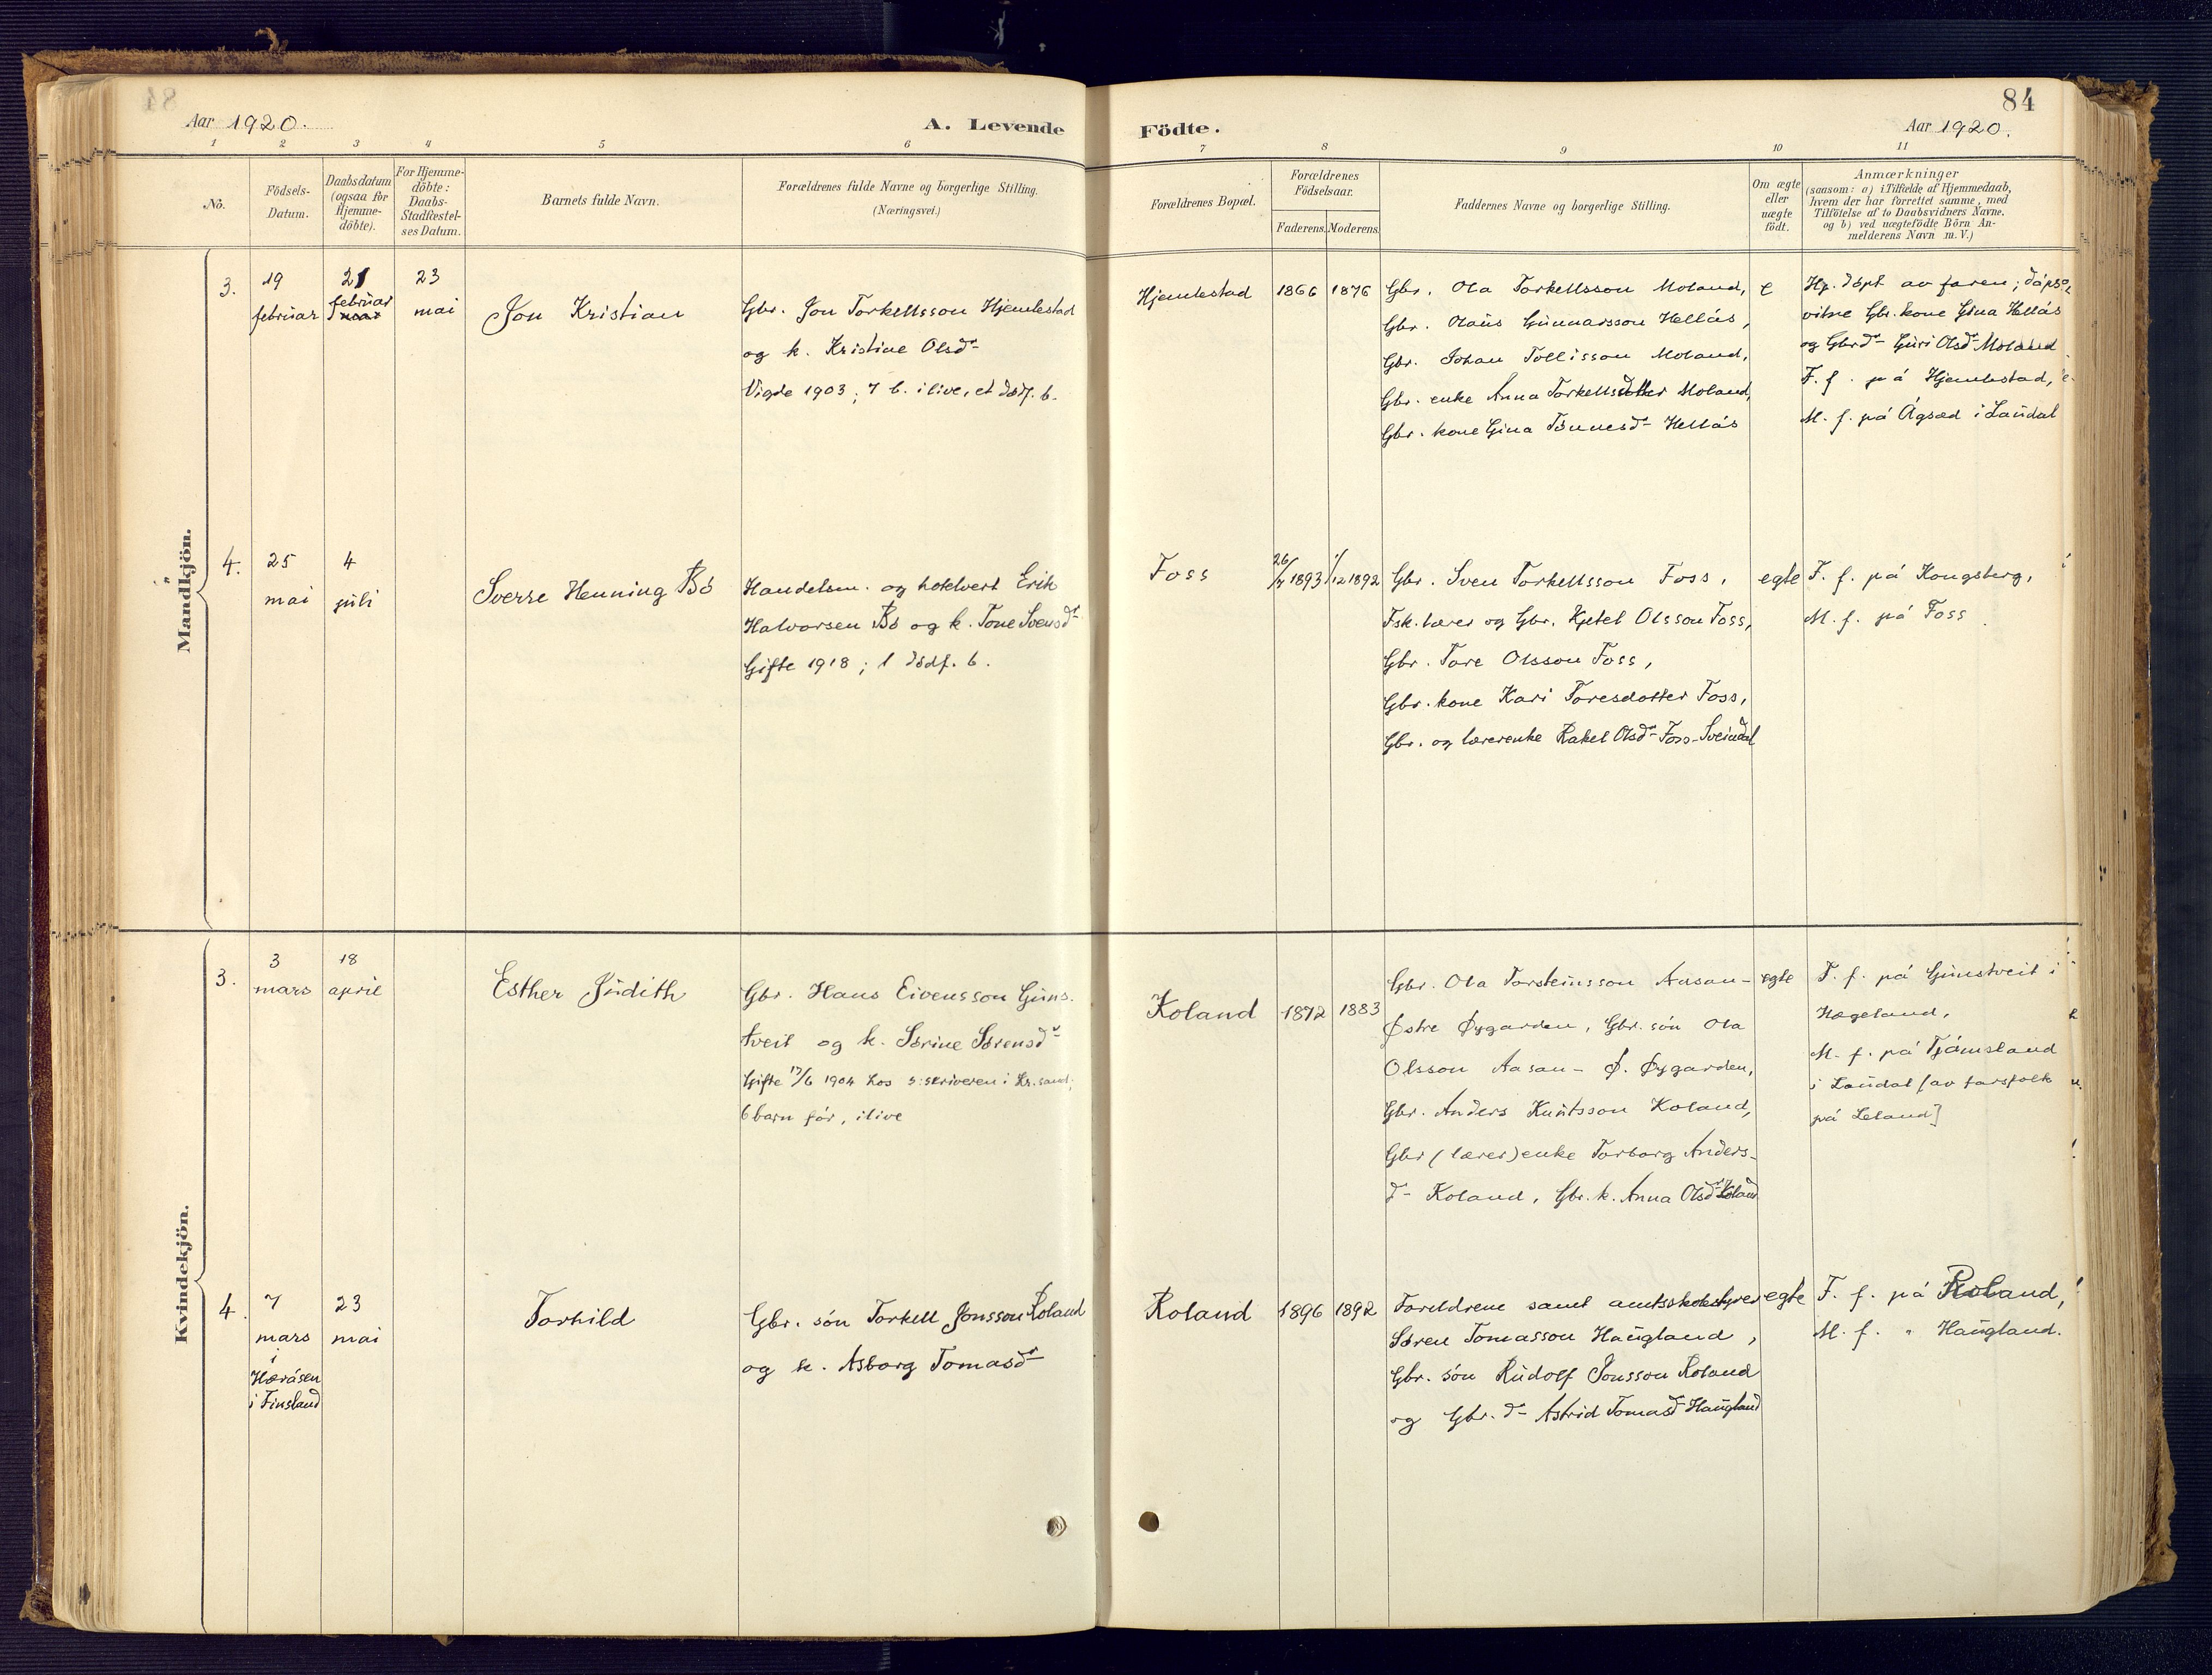 84
Aar 1920.
A. Levende Födte.
Aar 1920.
1 2 3 4 5 6 7 8 9 10 11
No.
Födsels-
Datum.
Daabsdatum
(ogsaa for
Hjemme-
döbte).
For Hjemme-
döbte:
Daabs-
Stadfæstel-
ses Datum.
Barnets fulde Navn.
Forældrenes fulde Navne og borgerlige Stilling.
(Næringsvei.)
Forældrenes Bopæl.
Forældrenes
Födselsaar.
Faderens. Moderens.
Faddernes Navne og borgerlige Stilling.
Om ægte
eller
uægte
födt.
Anmærkninger
(saasom: a) i Tilfælde af Hjemmedaab,
hvem der har forrettet samme, med
Tilföielse af to Daabsvidners Navne,
og b) ved uægtefödte Börn An-
melderens Navn m. V.)
Mandkjön.
3.
19
februar
21
februar
23
mai
Jon Kristian
Gbr. Jon Torkellsson Hjemlestad
og k. Kristine Olsd-
Vigde 1903; 7 b. i live, et dødf. b.
Hjemlestad
1866
1876
Gbr. Ola Torkellsson Moland,
Gbr. Olaus Gunnarsson Hellås,
Gbr. Johan Tollisson Moland,
Gbr. enke Anna Torkellsdotter Moland,
Gbr. kone Gina Tønnesd- Hellås
e
Hj. døpt av faren; dåps-
vitne Gbr. kone Gina Hellås
og Gbrd- Guri Olsd- Moland
F. f. på Hjemlestad,
M. f. på Ågsæd i Laudal
4.
25
mai
4
juli
Sverre Henning Bø
Handelsm. og hotelvert Erik
Halvorsen Bø og k. Tone Svensd-
Gifte 1918; 1 dødf. b.
Foss
26/4 1893
1/12 1892
Gbr. Sven Torkellsson Foss,
Fsk. lærer og Gbr. Kjetel Olsson Foss,
Gbr. Tore Olsson Foss,
Gbr. kone Kari Toresdotter Foss,
Gbr. og lærerenke Rakel Olsd- Foss-Sveindal
egte
F. f. på Kongsberg,
M. f. på Foss
Kvindekjön.
3.
3
mars
18
april
Esther Judith
Gbr. Hans Eivensson Guns-
tveit og k. Sørine Sørensd-
Gifte 17/6 1904 hos s:skriveren i Kr.sand;
6 barn før, i live
Koland
1872
1883
Gbr. Ola Torsteinsson Aasan-
Østre Øygarden, Gbr. søn Ola
Olsson Aasan- Ø. Øygarden,
Gbr. Anders Knutsson Koland,
Gbr (lærer)enke Torborg Anders-
d- Koland, Gbr. k. Anna Olsd- Koland
egte
F. f. på Gunstveit i
Hægeland,
M. f. på Tjåmsland
i Laudal [av farsfolk
på Leland]
4.
7
mars
i
Heråsen
i Finsland
23
mai
Torhild
Gbr. søn Torkell Jonsson Roland
og k. Asborg Tomasd-
Roland
1896
1892
Foreldrene samt amtsskolestyrer
Søren Tomasson Haugland,
Gbr. søn Rudolf Jonsson Roland
og Gbr. d- Astrid Tomasd- Haugland
egte
F. f. på Roland,
M. f. " Haugland.